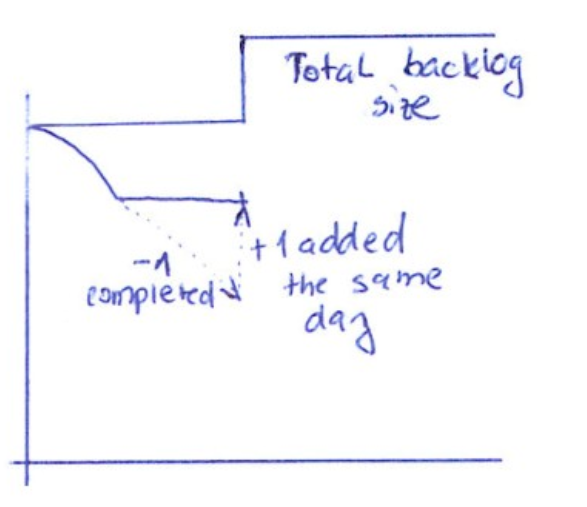 Total backlog
size
-1
completed
+1 added
the same
day